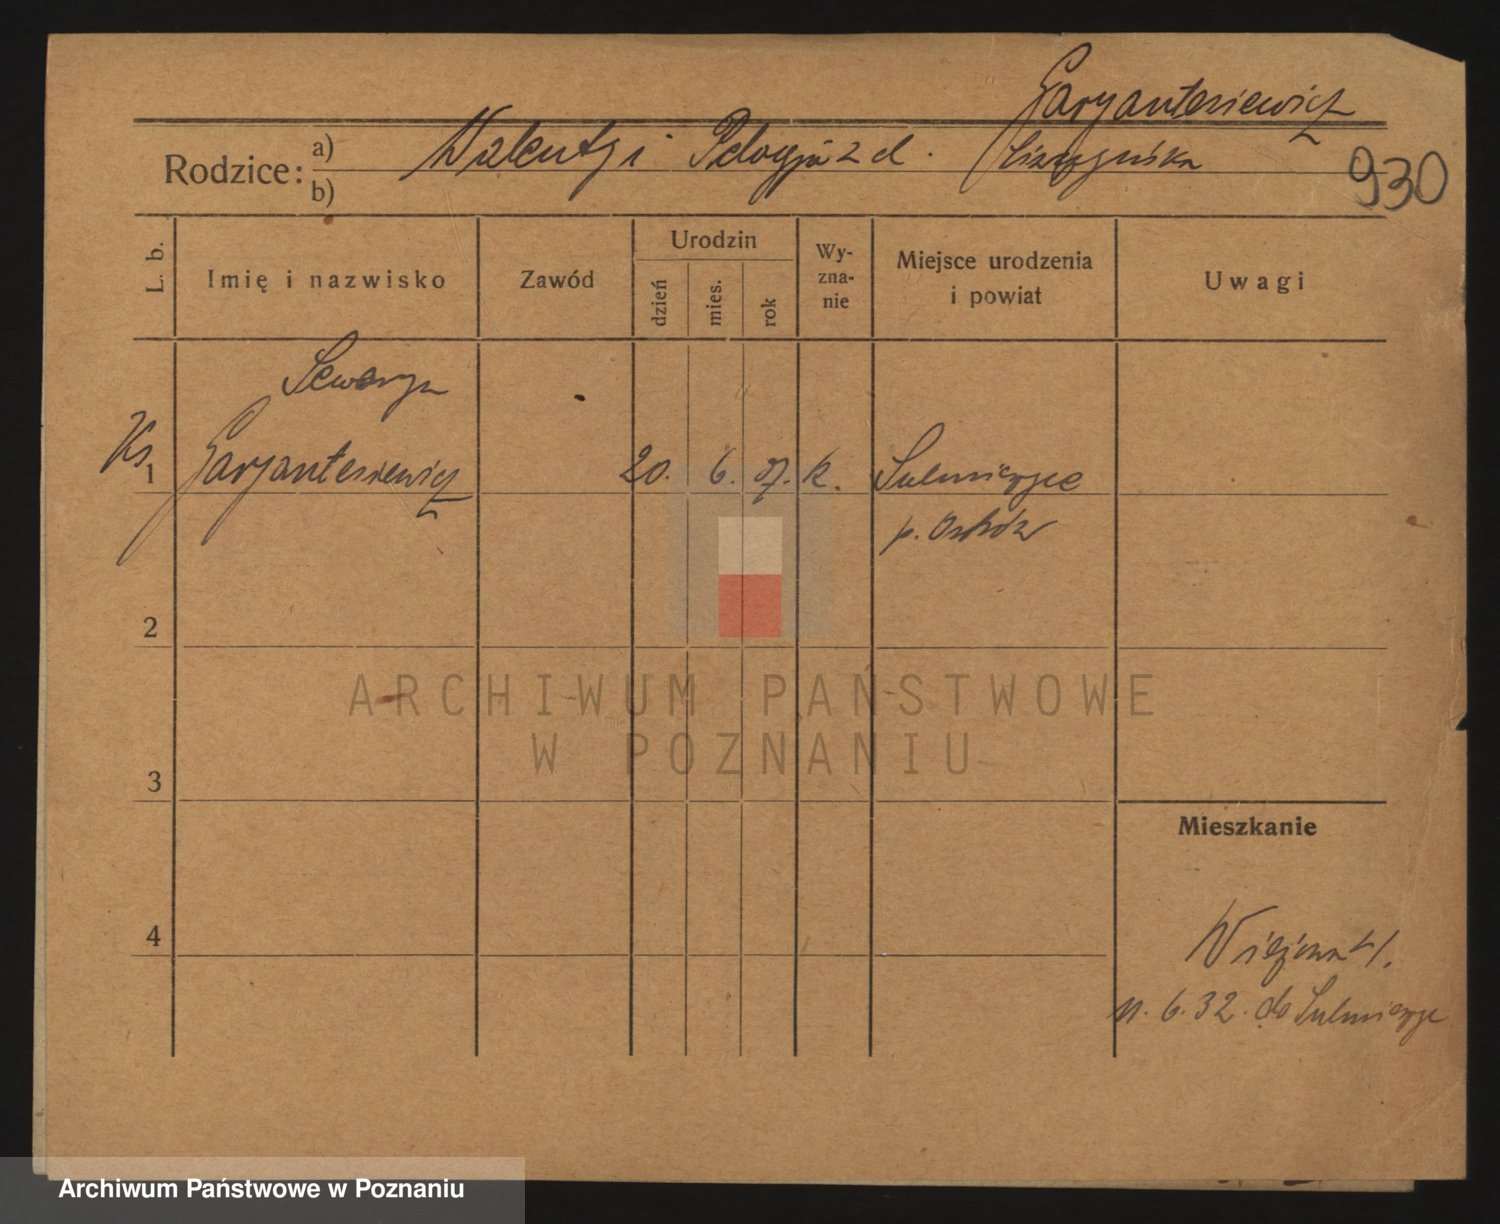 Garyantesiewicz
Rodzice: a) Walenty i Pelagja z d.
b)
930
L. b.
Imię i nazwisko
Zawód
Urodzin
dzień
mies.
rok
Wy-
zna-
nie
Miejsce urodzenia
i powiat
Uwagi
Seweryn
Ks.
1 Garyantesiewicz 20. 6. 07. k. Sulmierzyce
p. Ostrów
2
3
4
Mieszkanie
Wiejska 1.
11. 6. 32. do Sulmierzyc
ARCHIWUM PAŃSTWOWE
W POZNANIU
Archiwum Państwowe w Poznaniu